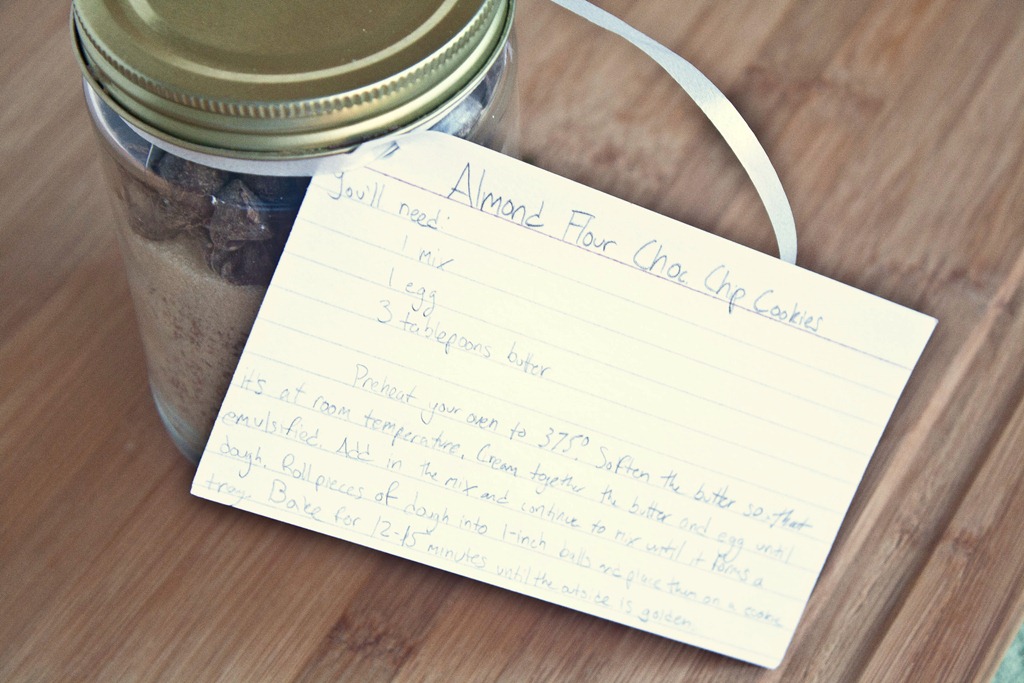 Almond Flour Choc. Chp Cookies
You'll need:
1 mix
1 egg
3 tablepoons butter
Preheat your oven to 375°. Soften the butter so that
it's at room temperature. Cream together the butter and egg until
emulsified. Add in the mix and continue to mix until it forms a
dough. Roll pieces of dough into 1-inch balls and place them on a
tray. Bake for 12-15 minutes until the outside is golden